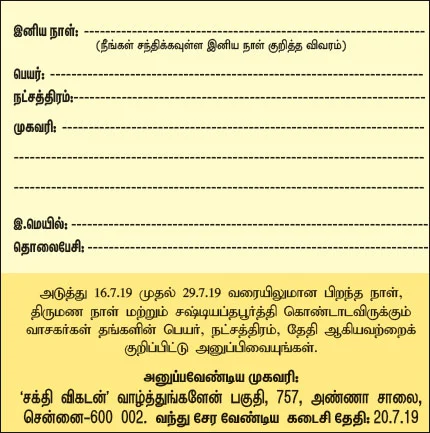 இனிய நாள்: ----------------------------------------------------------
(நீங்கள் சந்திக்கவுள்ள இனிய நாள் குறித்த விவரம்)
பெயர்: ----------------------------------------------------------
நட்சத்திரம்:----------------------------------------------------------
முகவரி: ----------------------------------------------------------
----------------------------------------------------------
----------------------------------------------------------
இ.மெயில்: ----------------------------------------------------------
தொலைபேசி: ----------------------------------------------------------
அடுத்து 16.7.19 முதல் 29.7.19 வரையிலுமான பிறந்த நாள்,
திருமண நாள் மற்றும் சஷ்டியப்தபூர்த்தி கொண்டாடவிருக்கும்
வாசகர்கள் தங்களின் பெயர், நட்சத்திரம், தேதி ஆகியவற்றைக்
குறிப்பிட்டு அனுப்பிவையுங்கள்.
அனுப்பவேண்டிய முகவரி:
‘சக்தி விகடன்’ வாழ்த்துங்களேன் பகுதி, 757, அண்ணா சாலை,
சென்னை-600 002. வந்து சேர வேண்டிய கடைசி தேதி: 20.7.19